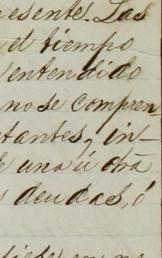 esente. Las
el tiempo
entendido
no se compren
tantes, in-
una ú otra
deudas, ó